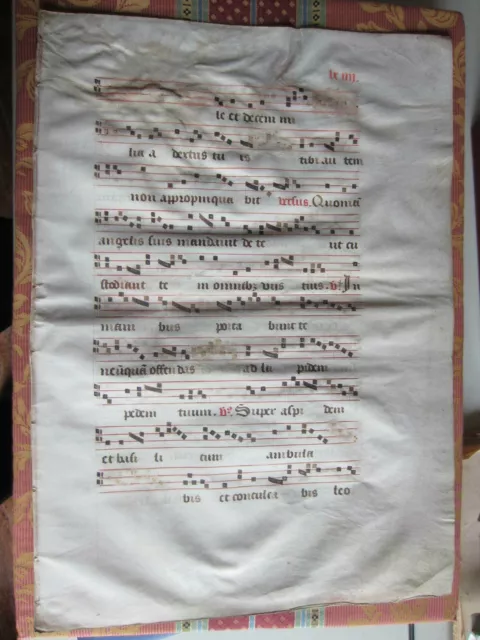 le et decem mi
lia a dextris tu is tibi au tem
non appropinqua bit versus. Quoniã
angelis suis mandauit de te ut cu
stodiant te in omnibꝫ viis tuis. v̓. In
mani bus porta bunt te
ne unquã offendas ad la pidem
pedem tuum. v̓. Super aspi dem
et basi li cum ambula
bis et conculca bis leo